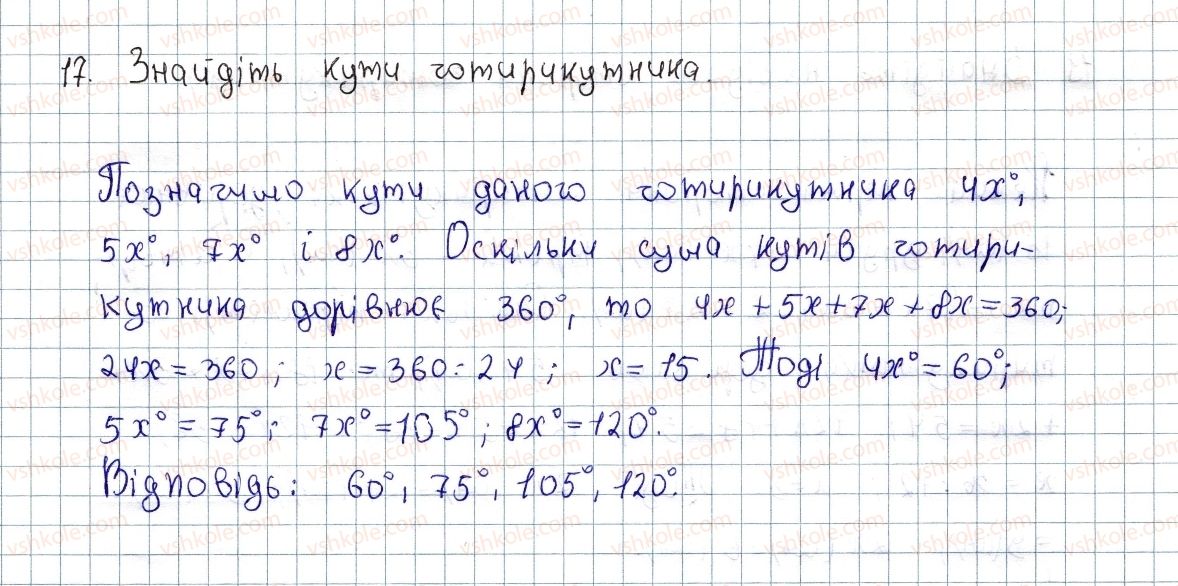 17. Знайдіть кути чотирикутника.
Позначимо кути даного чотирикутника 4x°,
5x°, 7x° і 8x°. Оскільки сума кутів чотири-
кутника дорівнює 360°, то 4x + 5x + 7x + 8x = 360;
24x = 360; x = 360 : 24; x = 15. Тоді 4x° = 60°;
5x° = 75°; 7x° = 105°; 8x° = 120°.
Відповідь: 60°, 75°, 105°, 120°.
vshkole.com